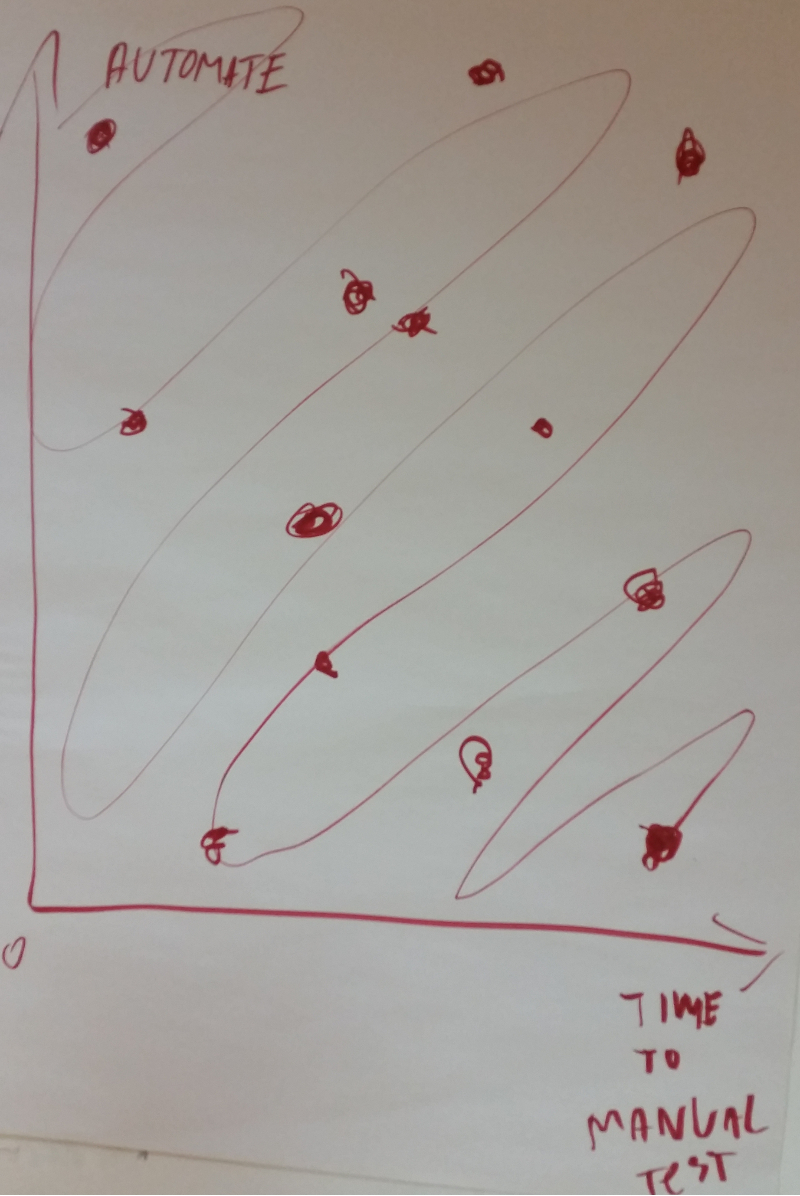 AUTOMATE
0
TIME
TO
MANUAL
TEST